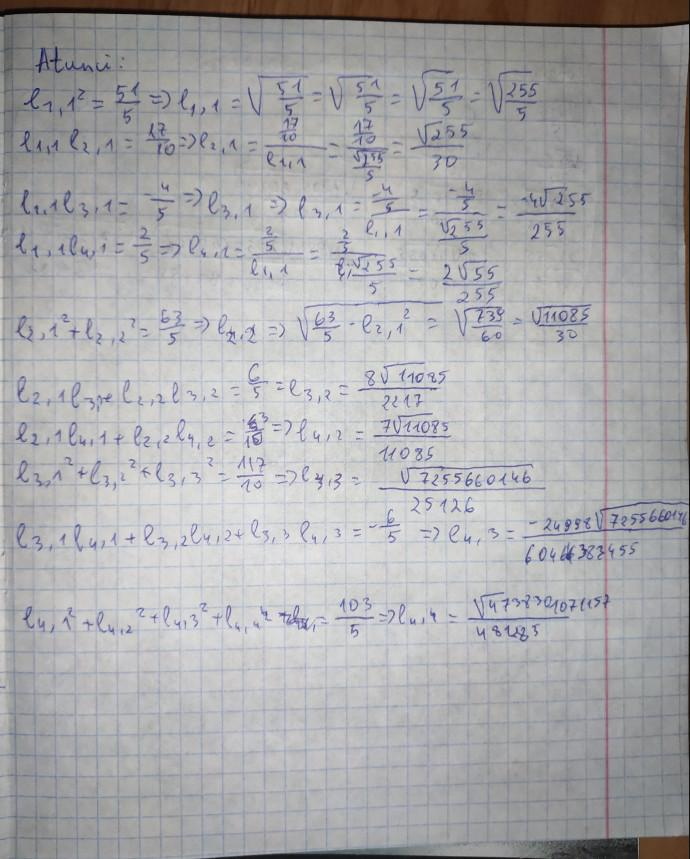 Atunci:
l₁,₁² = 51/5 => l₁,₁ = √(51/5) = √51/5 = √51/5 = √255/5
l₁,₁ l₂,₁ = 17/10 => l₂,₁ = (17/10)/l₁,₁ = (17/10)/(√255/5) = √255/30
l₁,₁ l₃,₁ = -4/5 => l₃,₁ => l₃,₁ = (4/5)/l₁,₁ = (-4/5)/(√255/5) = -4√255/255
l₁,₁ l₄,₁ = 2/5 => l₄,₁ = (2/5)/l₁,₁ = (2/5)/(√255/5) = 2√55/255
l₂,₁² + l₂,₂² = 63/5 => l₂,₂ => √(63/5 - l₂,₁²) = √739/60 = √11085/30
l₂,₁ l₃,₁ + l₂,₂ l₃,₂ = 6/5 = l₃,₂ = 8√11085/2217
l₂,₁ l₄,₁ + l₂,₂ l₄,₂ = => l₄,₂ = 7√11085/11085
l₃,₁² + l₃,₂² + l₃,₃² = 117/10 => l₃,₃ = √7255660146/25126
l₃,₁ l₄,₁ + l₃,₂ l₄,₂ + l₃,₃ l₄,₃ = -6/5 => l₄,₃ = -24998√7255660146/
l₄,₁² + l₄,₂² + l₄,₃² + l₄,₄² = 103/5 => l₄,₄ = √4738301071157/481285